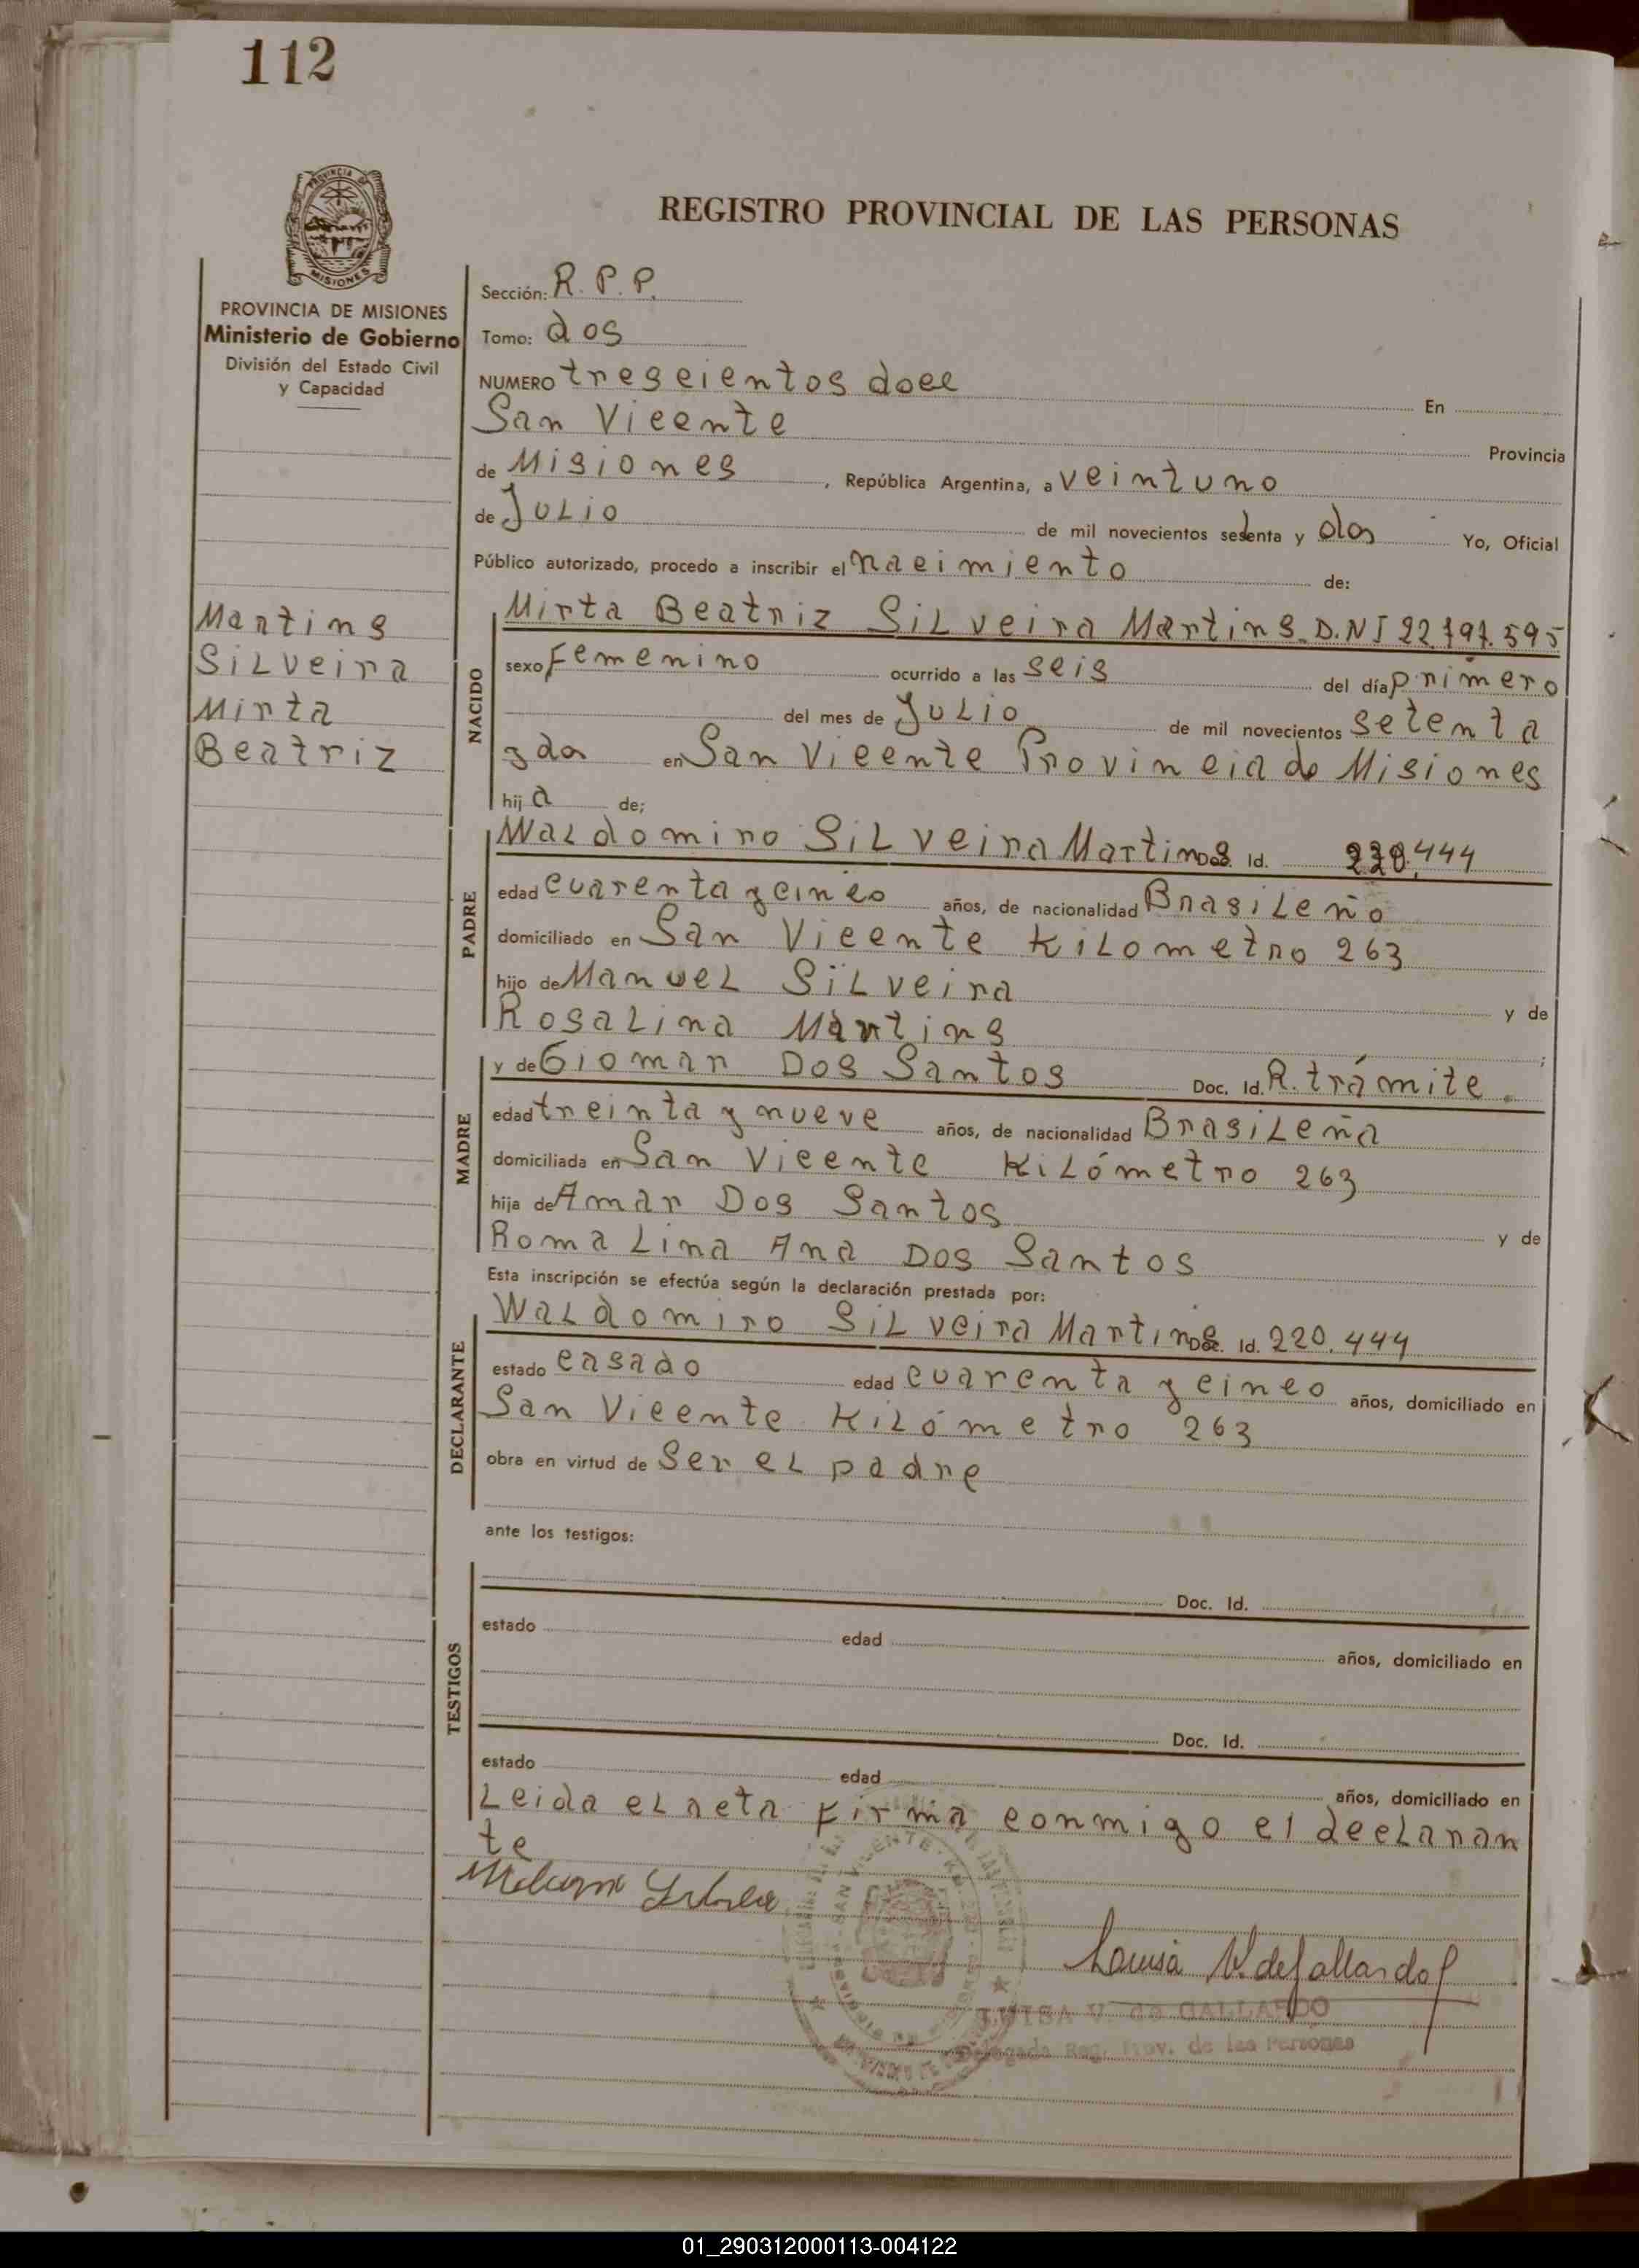 112
REGISTRO PROVINCIAL DE LAS PERSONAS
PROVINCIA DE MISIONES
Ministerio de Gobierno
División del Estado Civil
y Capacidad
Martins
Silveira
Mirta
Beatriz
Sección: R. P. P.
Tomo: dos
NUMERO trescientos doce En
San Vicente Provincia
de Misiones, República Argentina, a veintuno
de Julio de mil novecientos setenta y dos Yo, Oficial
Público autorizado, procedo a inscribir el nacimiento de:
NACIDO
Mirta Beatriz Silveira Martins. D.N I 22.797.595
sexo Femenino ocurrido a las seis del día primero
del mes de Julio de mil novecientos setenta
y dos en San Vicente Provincia de Misiones
hij a de;
PADRE
Waldomiro Silveira Martins Doc. Id. 220.444
edad cuarenta y cinco años, de nacionalidad Brasileño
domiciliado en San Vicente Kilometro 263
hijo de Manuel Silveira y de
Rosalina Martins ;
MADRE
y de Gioman Dos Santos Doc. Id. R. trámite.
edad treinta y nueve años, de nacionalidad Brasileña
domiciliada en San Vicente Kilómetro 263
hija de Amar Dos Santos y de
Roma Lina Ana Dos Santos
Esta inscripción se efectúa según la declaración prestada por:
DECLARANTE
Waldomiro Silveira Martins Doc. Id. 220.444
estado casado edad cuarenta y cinco años, domiciliado en
San Vicente Kilómetro 263
obra en virtud de Ser el padre
ante los testigos:
TESTIGOS
Doc. Id.
estado edad años, domiciliado en
Doc. Id.
estado edad años, domiciliado en
Leida el acta firma conmigo el declaran
te
Luisa V. de Gallardo
LUISA V. de GALLARDO
Delegada Reg. Prov. de las Personas
01_290312000113-004122